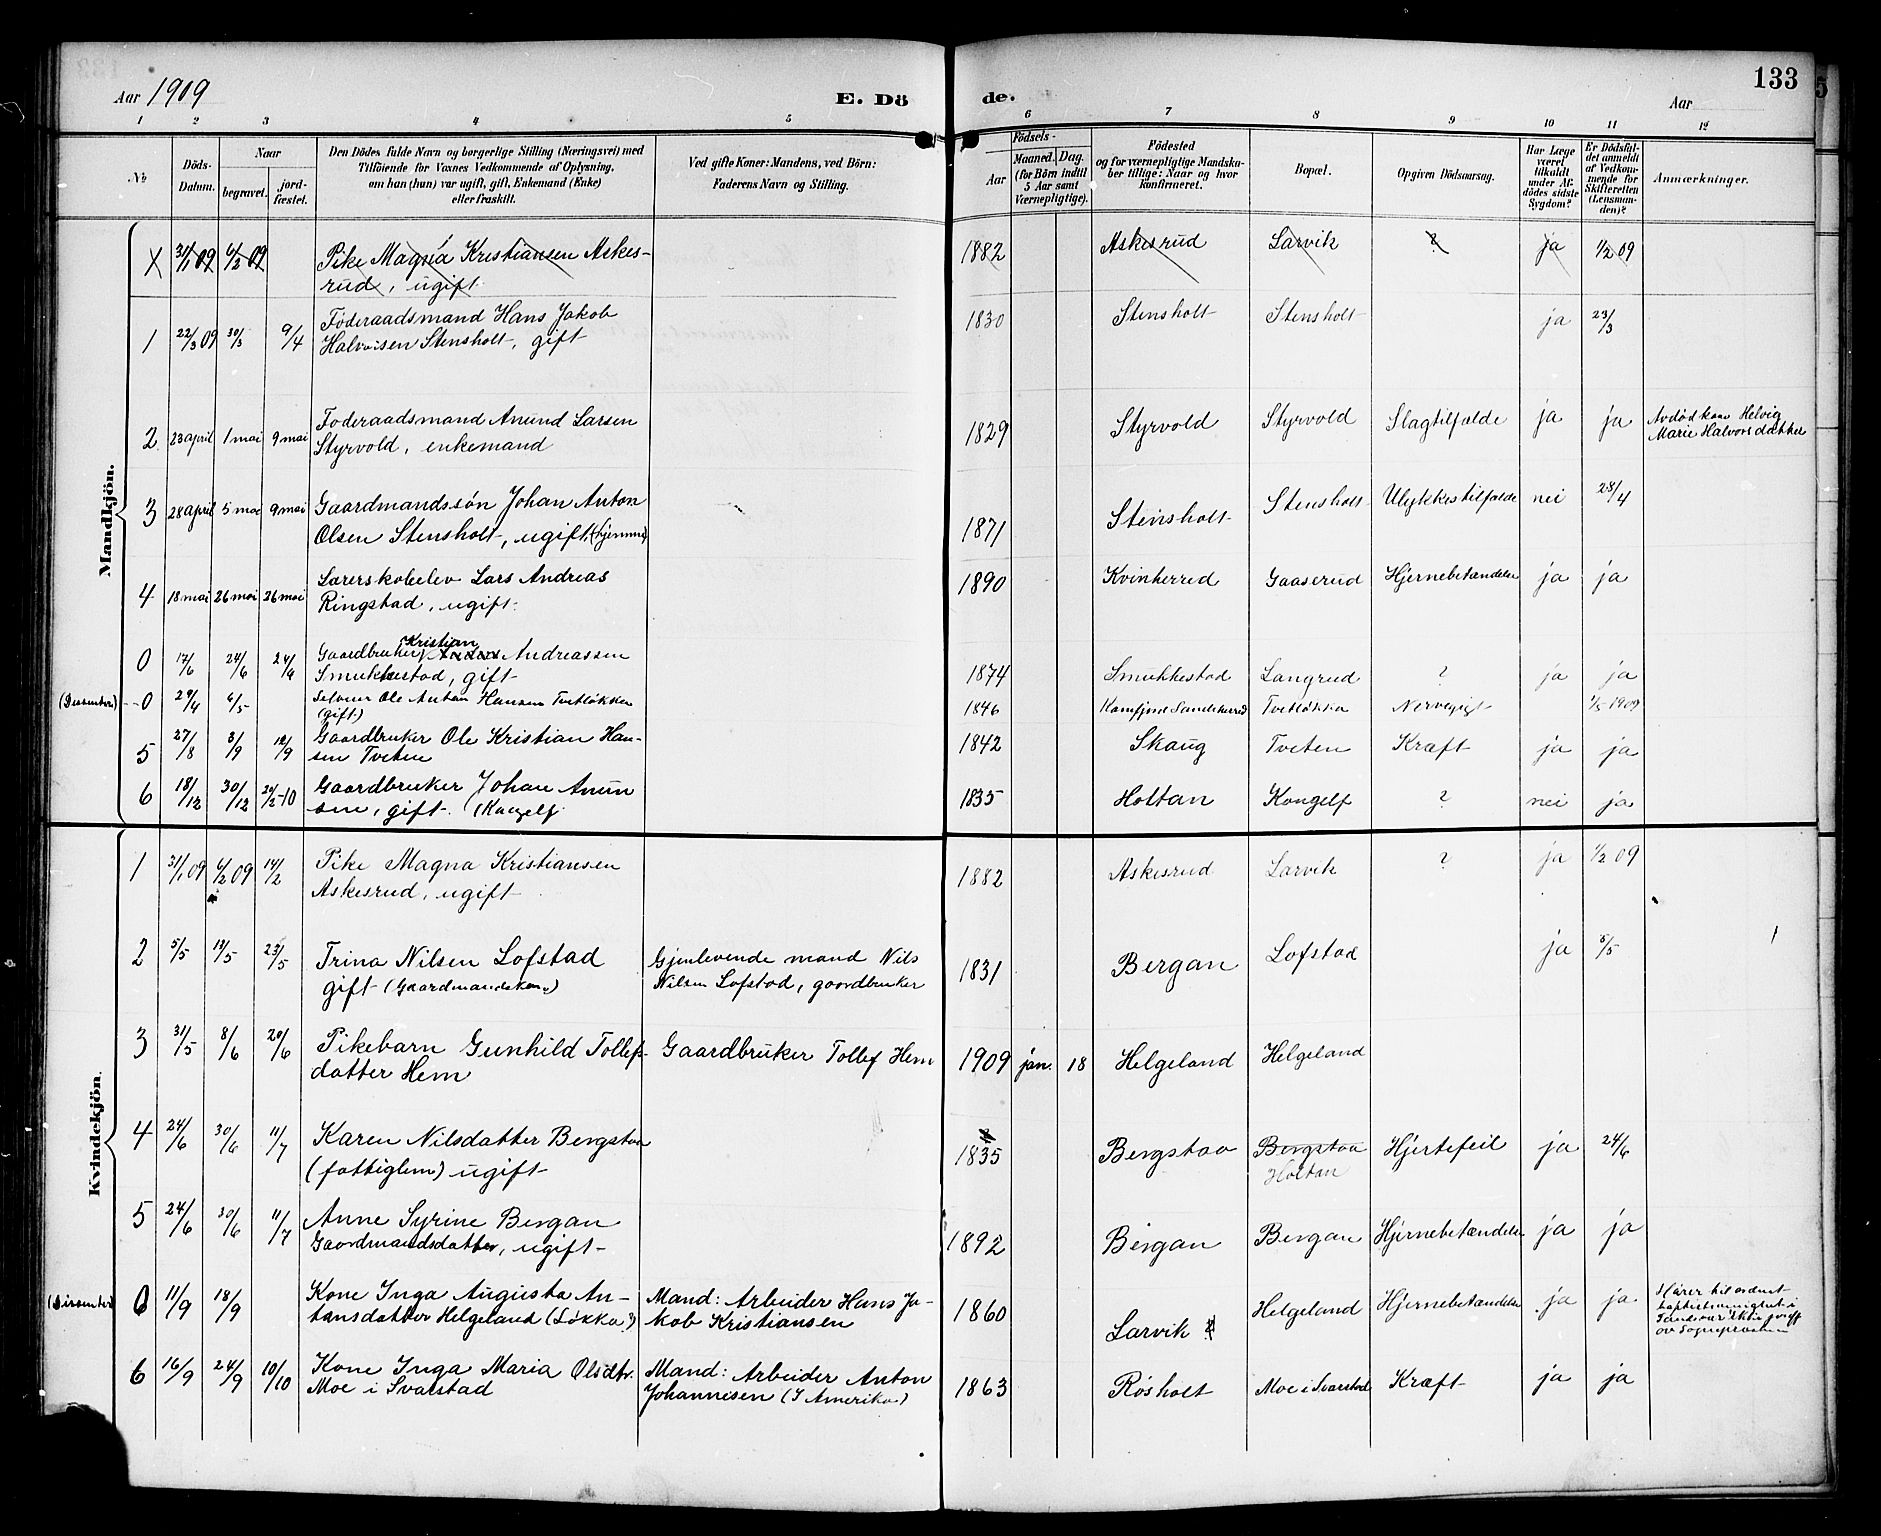 133
Aar 1909
E. Dö
de.
Aar
1 2 3 4 5 6 7 8 9 10 11 12
№
Döds-
Datum.
Naar
begravet.
jord-
fæstet.
Den Dödes fulde Navn og borgerlige Stilling (Næringsvei) med
Tilföiende for Voxnes Vedkommende af Oplysning,
om han (hun) var ugift, gift, Enkemand (Enke)
eller fraskilt.
Ved gifte Koner: Mandens, ved Börn:
Faderens Navn og Stilling.
Födsels-
Aar
Maaned. Dag.
(for Börn indtil
5 Aar samt
Værnepligtige).
Födested
og for værnepligtige Mandska-
ber tillige: Naar og hvor
konfirmeret.
Bopæl.
Opgiven Dödsaarsag.
Har Læge
været
tilkaldt
under Af-
dödes sidste
Sygdom?
Er Dödsfal-
det anmeldt
af Vedkom-
mende for
Skifteretten
(Lensman-
den)?
Anmærkninger.
Mandkjön.
X 31/1 09 6/2 09 Pike Magna Kristiansen Askes- 1882 Askesrud Larvik ? ja 1/2 09
rud, ugift
1 22/3 09 30/3 9/4 Føderaadsmand Hans Jakob 1830 Stensholt Stensholt ja 23/3
Halvorsen Stensholt, gift
2 23 april 1 mai 9 mai Føderaadsmand Anund Larsen 1829 Styrvold Styrvold Slagtilfælde ja ja Avdød kone Helvig
Styrvold, enkemand Marie Halvorsdatter
3 28 april 5 mai 9 mai Gaardmandssøn Johan Anton 1871 Stensholt Stensholt Ulykkestilfælde nei 28/4
Olsen Stensholt, ugift (hjemme)
4 18 mai 26 mai 26 mai Lærerskoleelev Lars Andreas 1890 Kvinherred Gaaserud Hjernebetændelse ja ja
Ringstad, ugift.
Kristian
0 17/6 24/6 24/6 Gaardbruker Andreassen 1874 Smukkestad Langrud ? ja ja
Smukkestad, gift
(Dissenter) 0 29/4 6/5 Ole Anton Hansen Tvetløkken 1846 Sandeherred Tvetløkka Nervegigt 1/5 1909
(gift)
5 27/8 3/9 12/9 Gaardbruker Ole Kristian Han- 1842 Skaug Tveten Kræft ja ja
sen Tveten
6 18/12 30/12 20/2-10 Gaardbruker Johan Anun 1835 Holtan Kongelf ? nei ja
sen, gift. (Kongelf
Kvindekjön.
1 31/1 09 6/2 09 14/2 Pike Magna Kristiansen 1882 Askesrud Larvik ? ja 1/2 09
Askesrud, ugift
2 5/5 13/5 23/5 Trina Nilsen Lofstad Gjenlevende mand Nils 1831 Bergan Lofstad ja 8/5
gift (Gaardmandskone) Nilsen Lofstad, gaardbruker
3 31/5 8/6 20/6 Pikebarn Gunhild Tollefs- Gaardbruker Tollef Hem 1909 jan. 18 Helgeland Helgeland
datter Hem
4 24/6 30/6 11/7 Karen Nilsdatter Bergstaa 1835 Bergstaa Bergstaa Hjertefeil ja 24/6
(fattiglem) ugift Holtan
5 24/6 30/6 11/7 Anne Syrine Bergan 1892 Bergan Bergan Hjernebetændelse ja ja
Gaardmandsdatter, ugift
(Dissenter) 0 11/9 18/9 Kone Inga Augusta An- Mand: Arbeider Hans Ja- 1860 Larvik Helgeland Hjernebetændelse ja ja
tonsdatter Helgeland (Løkka) kob Kristiansen
av Sognepræsten
6 16/9 24/9 10/10 Kone Inga Maria Olsdtr. Mand: Arbeider Anton 1863 Røsholt Moe i Svarstad Kræft ja ja
Moe i Svarstad Johannesen (I Amerika)